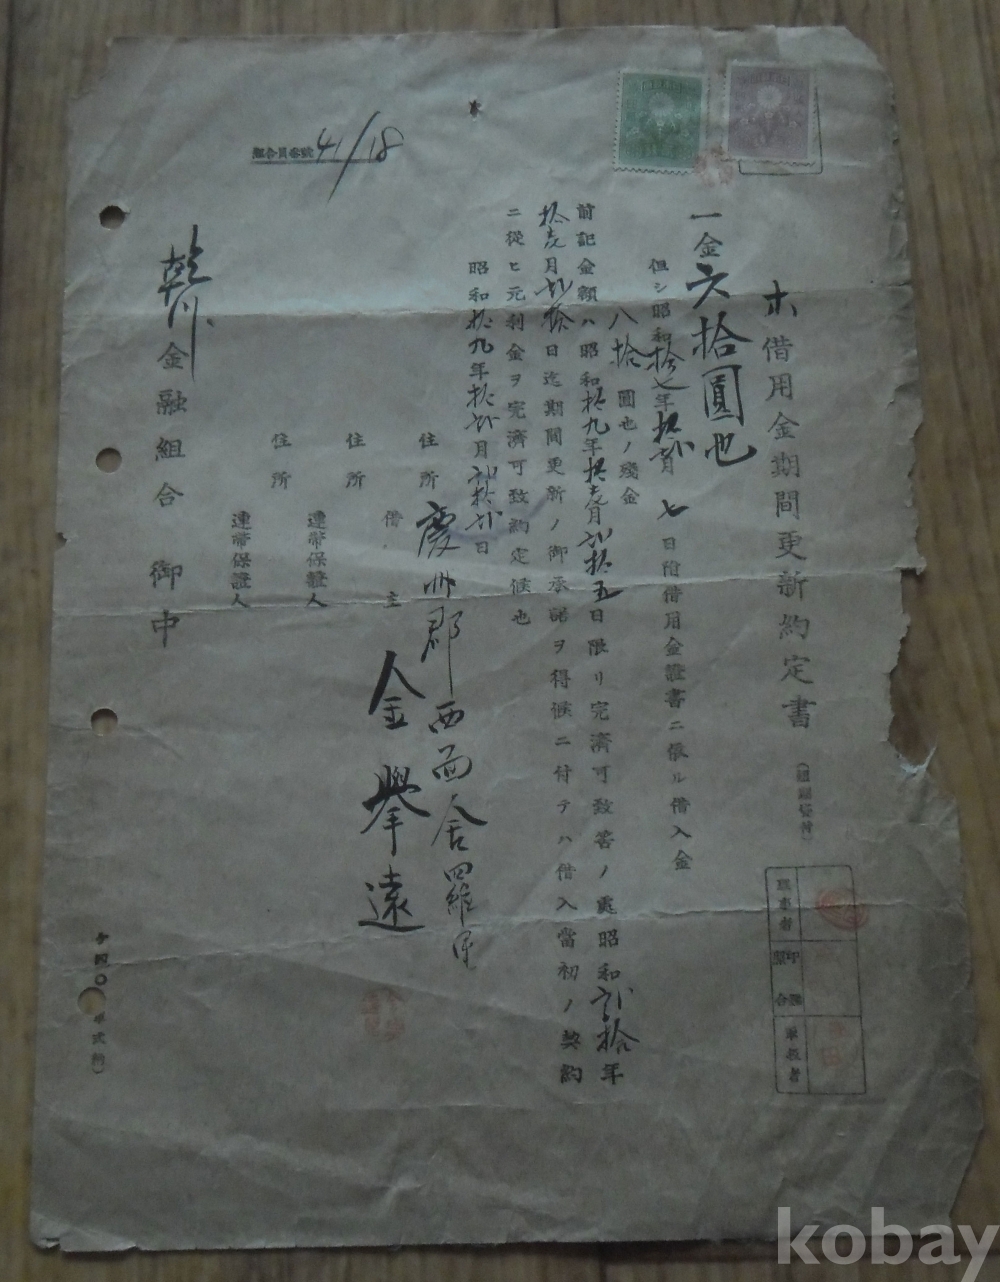 組合員番號 41/18
ホ 借用金期間更新約定書
一金六拾圓也
但シ昭和拾七年拾弐月七日附借用金證書ニ依ル借入金
八拾圓也ノ殘金
前記金額ハ昭和拾九年拾壱月弐拾五日限リ完濟可致筈ノ處昭和弐拾年
拾壱月弐拾日迄期間更新ノ御承諾ヲ得候ニ付テハ借入當初ノ契約
ニ從ヒ元利金ヲ完濟可致約定候也
昭和拾九年拾弐月弐拾弐日
住所 慶州郡西面舍羅里
借主 金擧遠
住所
連帶保證人
住所
連帶保證人
乾川金融組合 御中
印鑑
照合
kobay